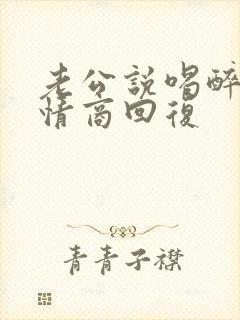 老公説喝醉
情商回復
青青子襟